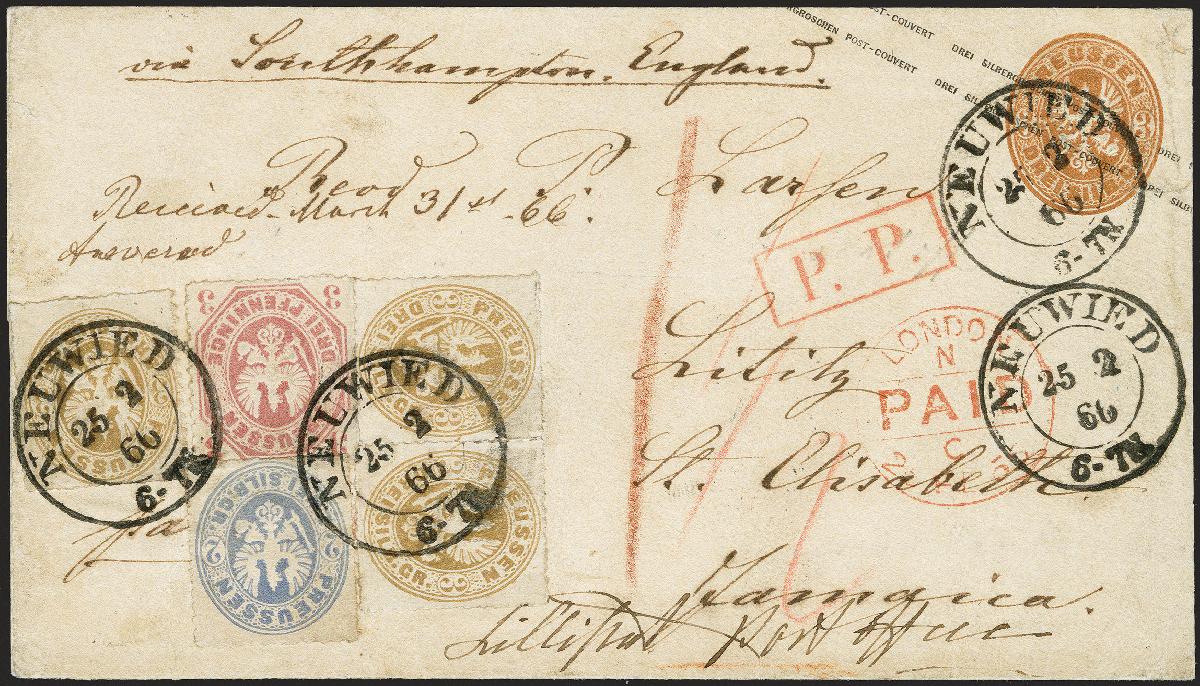 GROSCHEN POST-COUVERT DREI SILBERG
POST-COUVERT DREI SIL
via Southhampton. England.
PREUSSEN
NEUWIED
25 2
66
6-7N
Revd P. Larsen
Received March 31st 66.
Answered
P. P.
Lititz
LONDON
PAID
NEUWIED
25 2
66
6-7N
St. Elisabeth
Jamaica.
Lilliput Port Office
NEUWIED
25 2
66
6-7N
PREUSSEN
3
DREI PFENNINGE
PREUSSEN
NEUWIED
25 2
66
6-7N
PREUSSEN
DREI
3
PREUSSEN
3
GR.
2
PREUSSEN
2